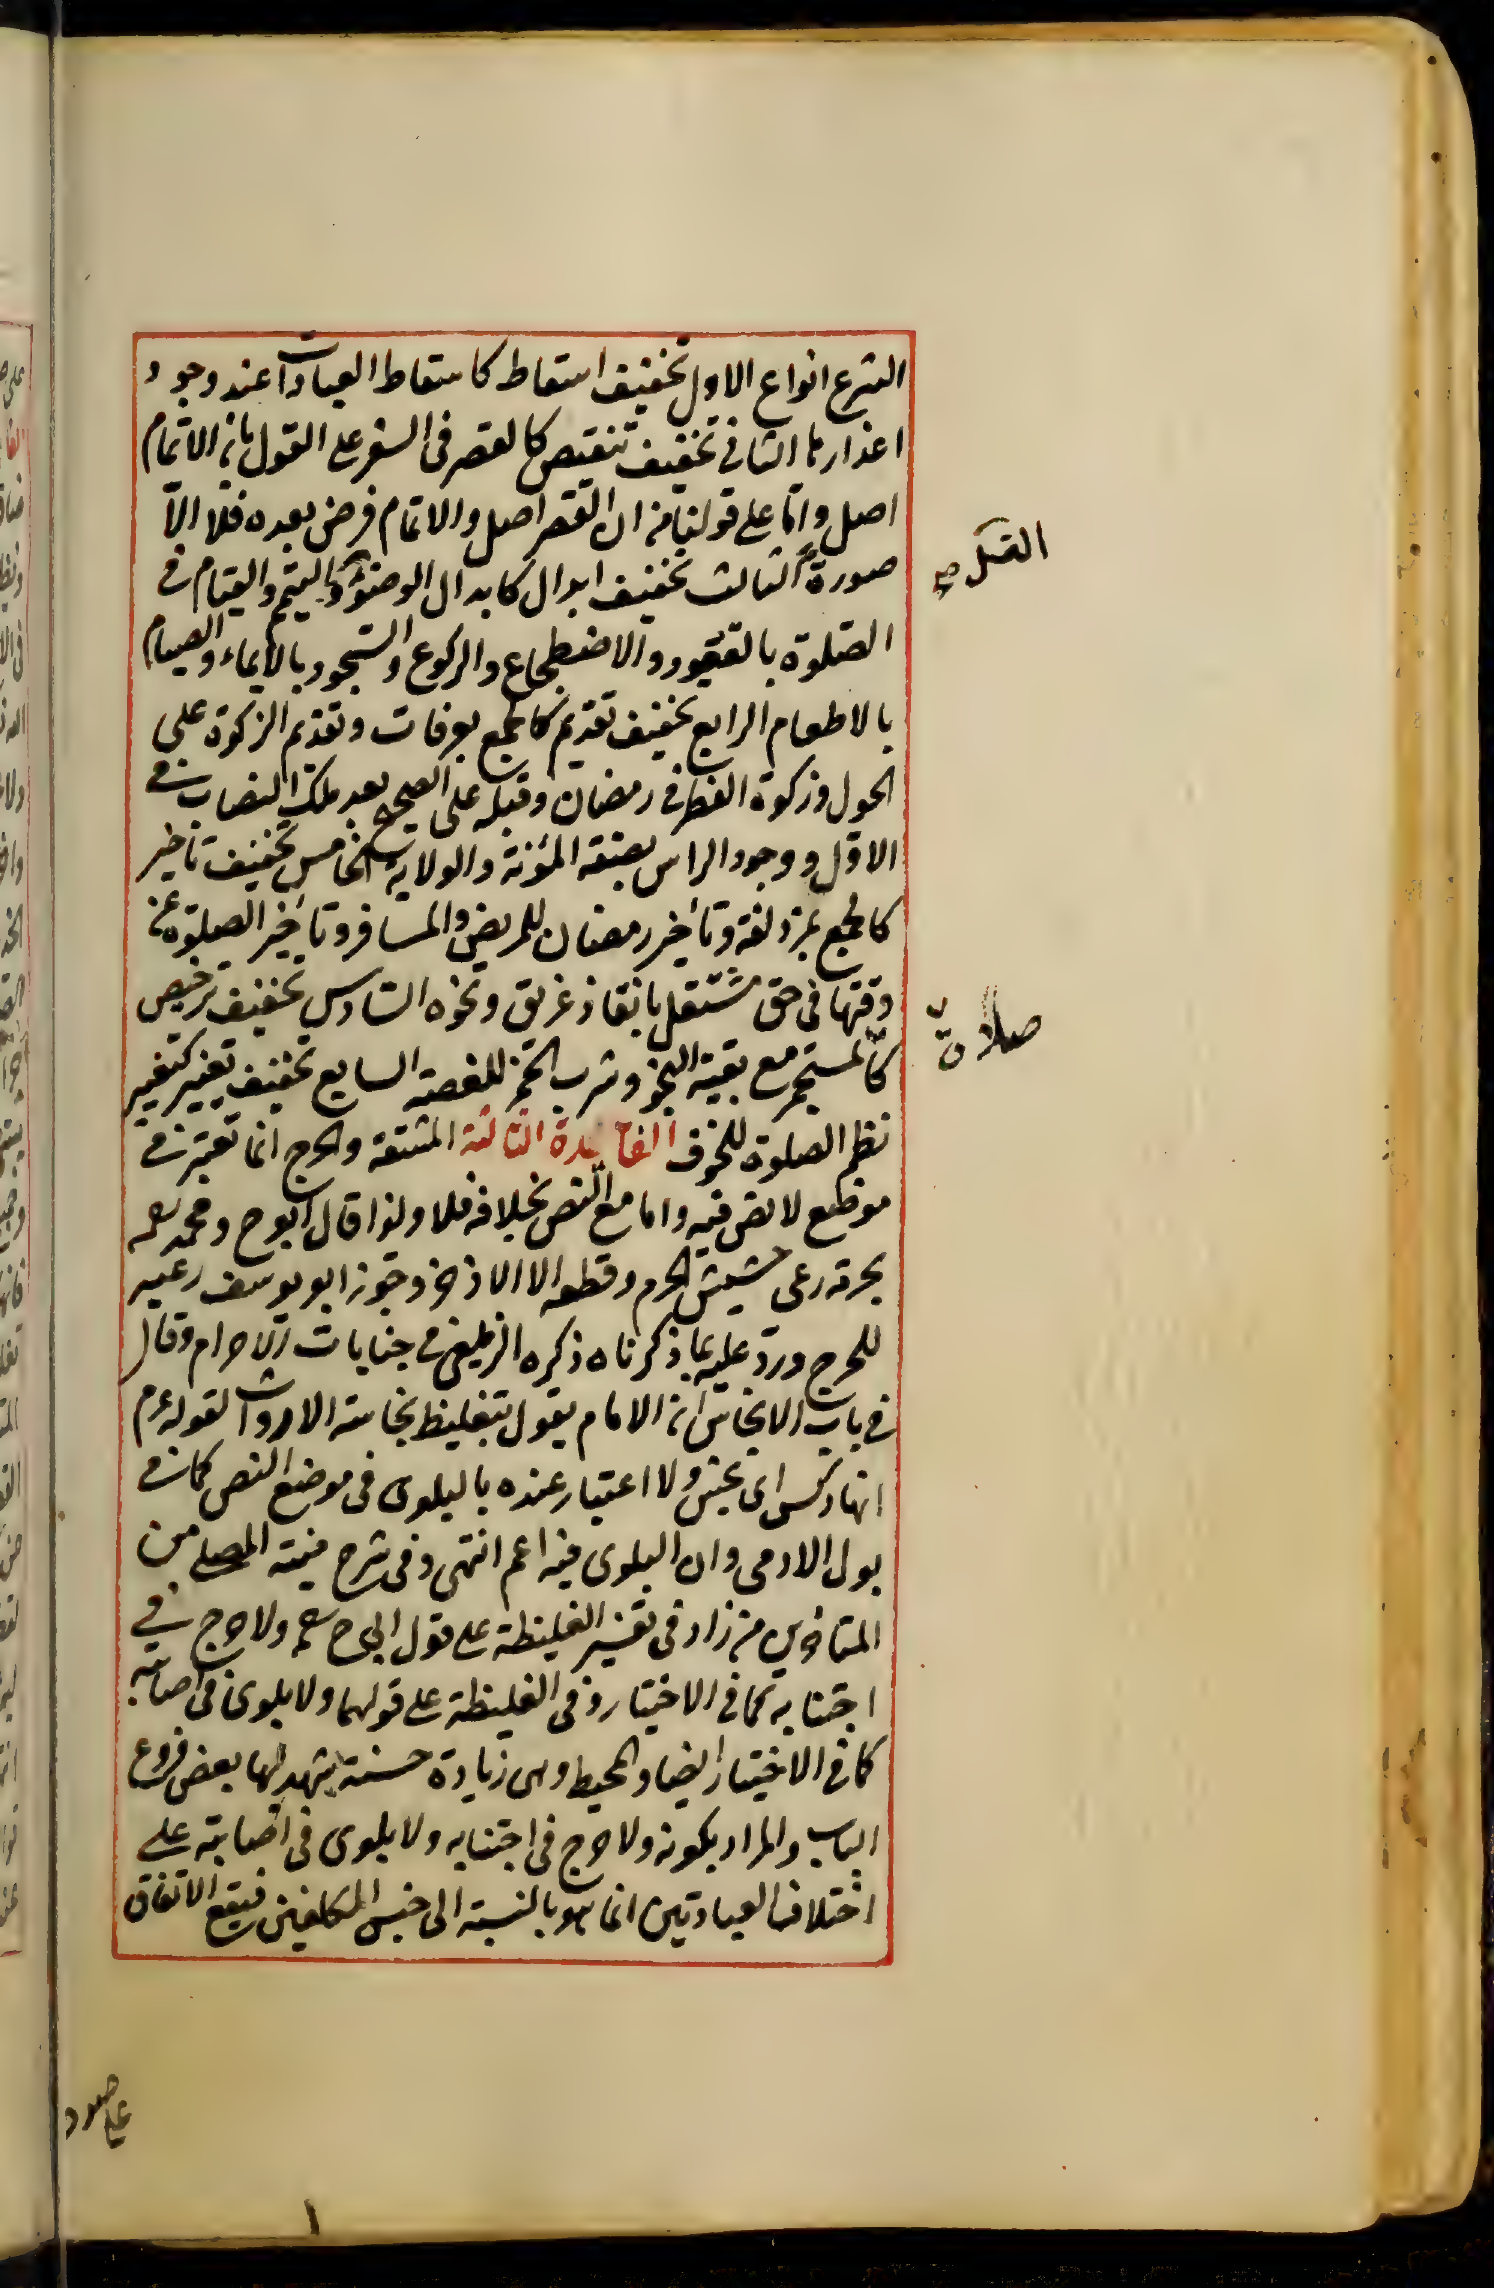 الشرع انواع الاول تخفيف اسقاط كاسقاط العبادات عند وجود
اعذارها الثانى تخفيف تنقيص كالقصر فى السفر على القول بان الاتمام
اصل واما على قولنا من ان القصر اصل والاتمام فرض بعده فلا الا
صورة الثالث تخفيف ابدال كابدال الوضوء والتيمم والقيام فى
الصلوة بالقعود والاضطجاع والركوع والسجود بالايماء والصيام
بالاطعام الرابع تخفيف تقديم كالجمع بعرفات وتقديم الزكوة على
الحول وزكوة الفطر فى رمضان وقبله على الصحيح بعد ملك النصاب فى
الاول ووجود الراس بصفة المؤنة والولاية الخامس تخفيف تاخير
كالجمع بمزدلفة وتأخير رمضان للمريض والمسافر وتأخير الصلوة عن
وقتها فى حق مشتغل بانقاذ غريق ونحوه السادس تخفيف ترخيص
كالمستجمر مع بقية النجو وشرب الخمر للغصة السابع تخفيف تغيير كتغيير
نظم الصلوة للخوف الفايدة الثالثة المشقة والحرج انما تعتبر فى
موضع لا نص فيه واما مع النص بخلافه فلا ولذا قال ابوح ومحمد رحمه
بحرمة رعى حشيش الحرم وقطعه الا الاذخر وجوز ابو يوسف رعيه
للحرج ورد عليه بما ذكرناه ذكره الزيلعى فى جنايات الاحرام وقال
فى باب الانجاس ان الامام يقول بتغليظ نجاسة الارواث لقوله عم
انها ركس اى نجس ولا اعتبار عنده بالبلوى فى موضع النص كما فى
بول الادمى وان البلوى فيه اعم انتهى وفى شرح منية المصلى من
المتاخرين من زاد فى تفسير الغليظة على قول ابى ح رحمه ولا حرج فى
اجتنابه كما فى الاختيار وفى الغليظة على قولهما ولا بلوى فى اصابته
كما فى الاختيار ايضا والمحيط وهى زيادة حسنة يشهد لها بعض فروع
الباب والمراد بكونه ولا حرج فى اجتنابه ولا بلوى فى اصابته على
اختلاف العبادتين انما هو بالنسبة الى جنس المكلفين فيقع الاتفاق
صلاة